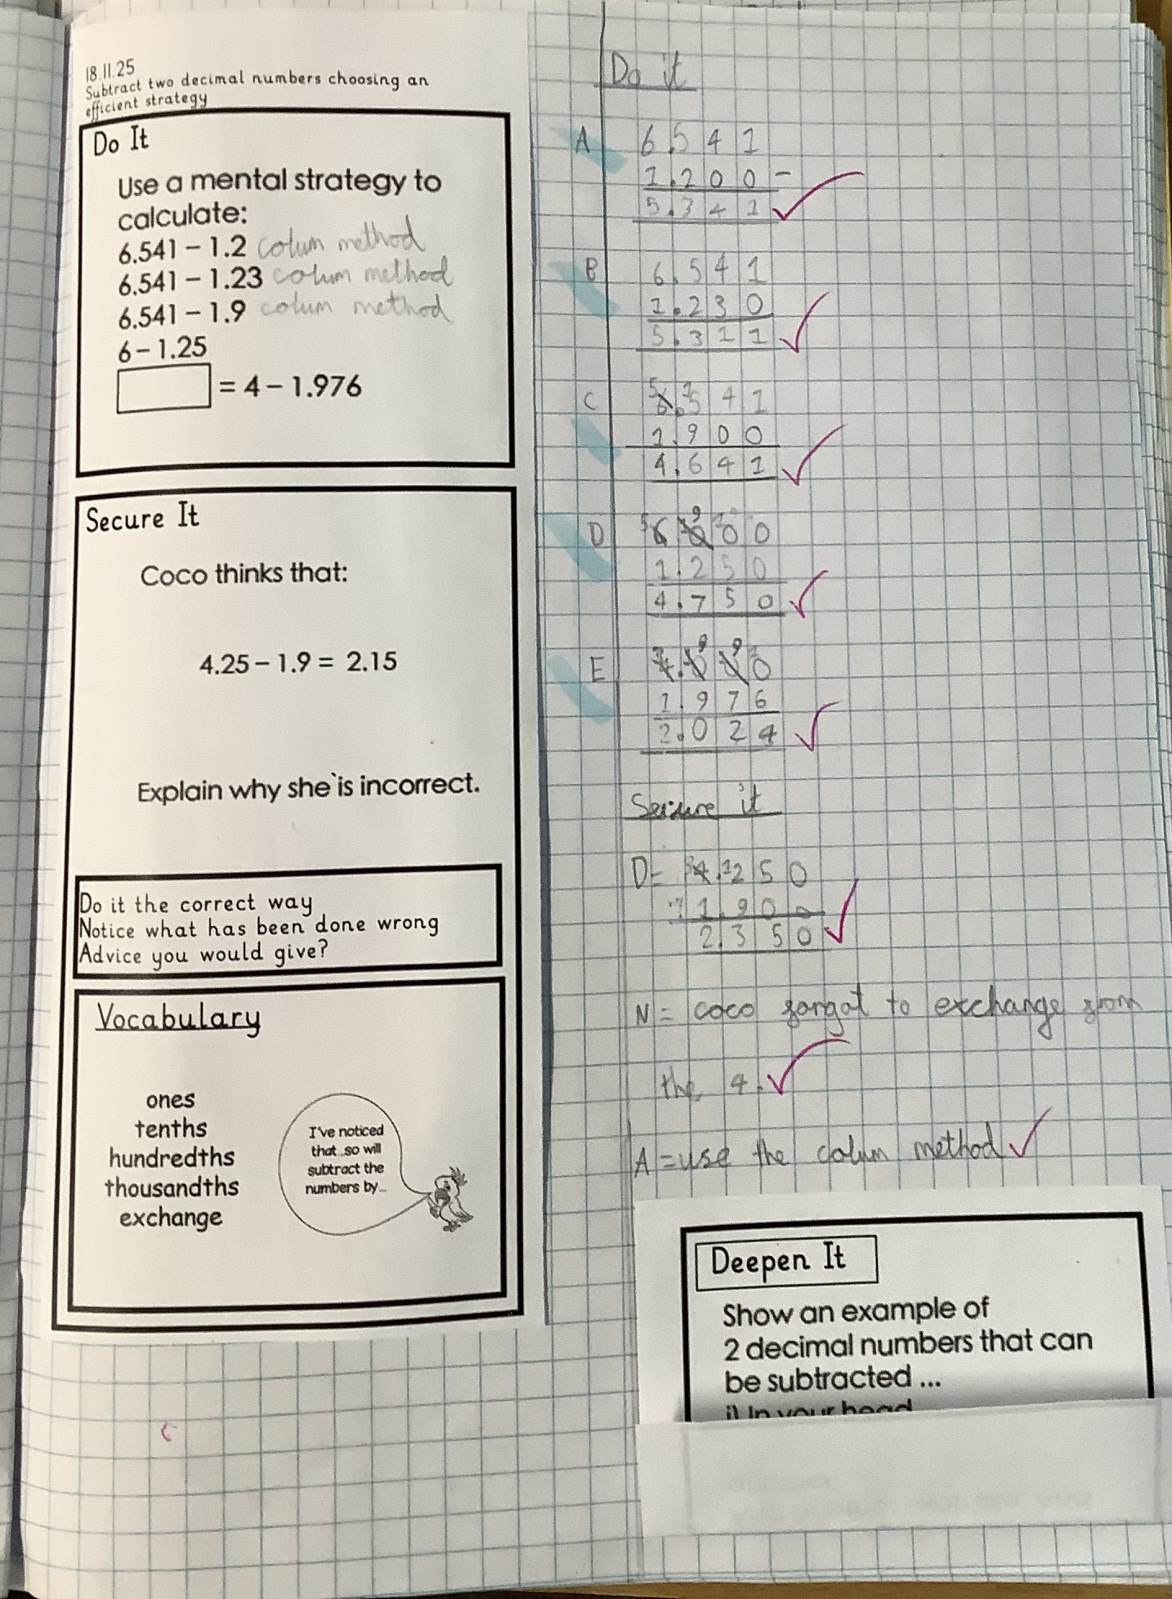 18.11.25
Subtract two decimal numbers choosing an
efficient strategy
Do It
Use a mental strategy to
calculate:
6.541 – 1.2 colum method
6.541 – 1.23 colum method
6.541 – 1.9 colum method
6 – 1.25
= 4 – 1.976
Secure It
Coco thinks that:
4.25 – 1.9 = 2.15
Explain why she is incorrect.
Do it the correct way
Notice what has been done wrong
Advice you would give?
Vocabulary
ones
tenths
hundredths
thousandths
exchange
I've noticed
that...so will
subtract the
numbers by...
Do it
A 6.541
1.200 –
5.341
B 6.541
1.230
5.311
C 5 1
6.541
1.900
4.641
D 5 9 1
6 1000
1.250
4.750
E 3 9 9 1
4.000
1.976
2.024
Secure it
D= 3 4.1250
1.900
2.350
N = coco forgot to exchange from
the 4.
A = use the colum method
Deepen It
Show an example of
2 decimal numbers that can
be subtracted ...
i) In your head